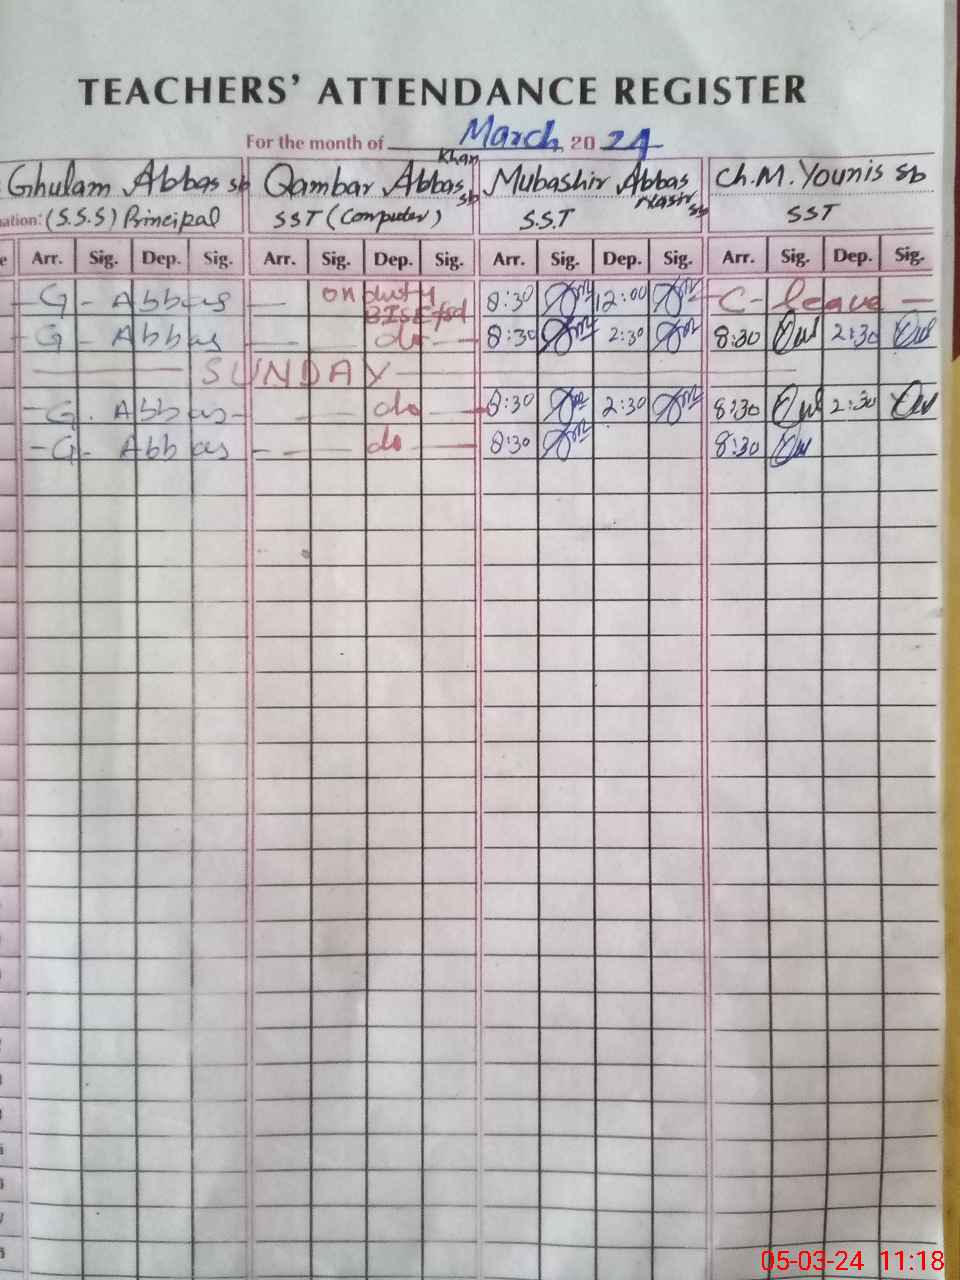 TEACHERS' ATTENDANCE REGISTER
For the month of March 2024
Ghulam Abbas sb Qambar Abbas Khan sb Mubashir Abbas Nasir sb Ch. M. Younis sb
ation: (S.S.S) Principal SST (Computer) S.S.T SST
e Arr. Sig. Dep. Sig. Arr. Sig. Dep. Sig. Arr. Sig. Dep. Sig. Arr. Sig. Dep. Sig.
G - Abbas — on duty BISE fsd 8:30 12:00 C - leave —
G - Abbas — do — 8:30 2:30 8:30 2:30
SUNDAY
G. Abbas - — do — 8:30 2:30 8:30 2:30
- G - Abbas - — do — 8:30 8:30
05-03-24 11:18